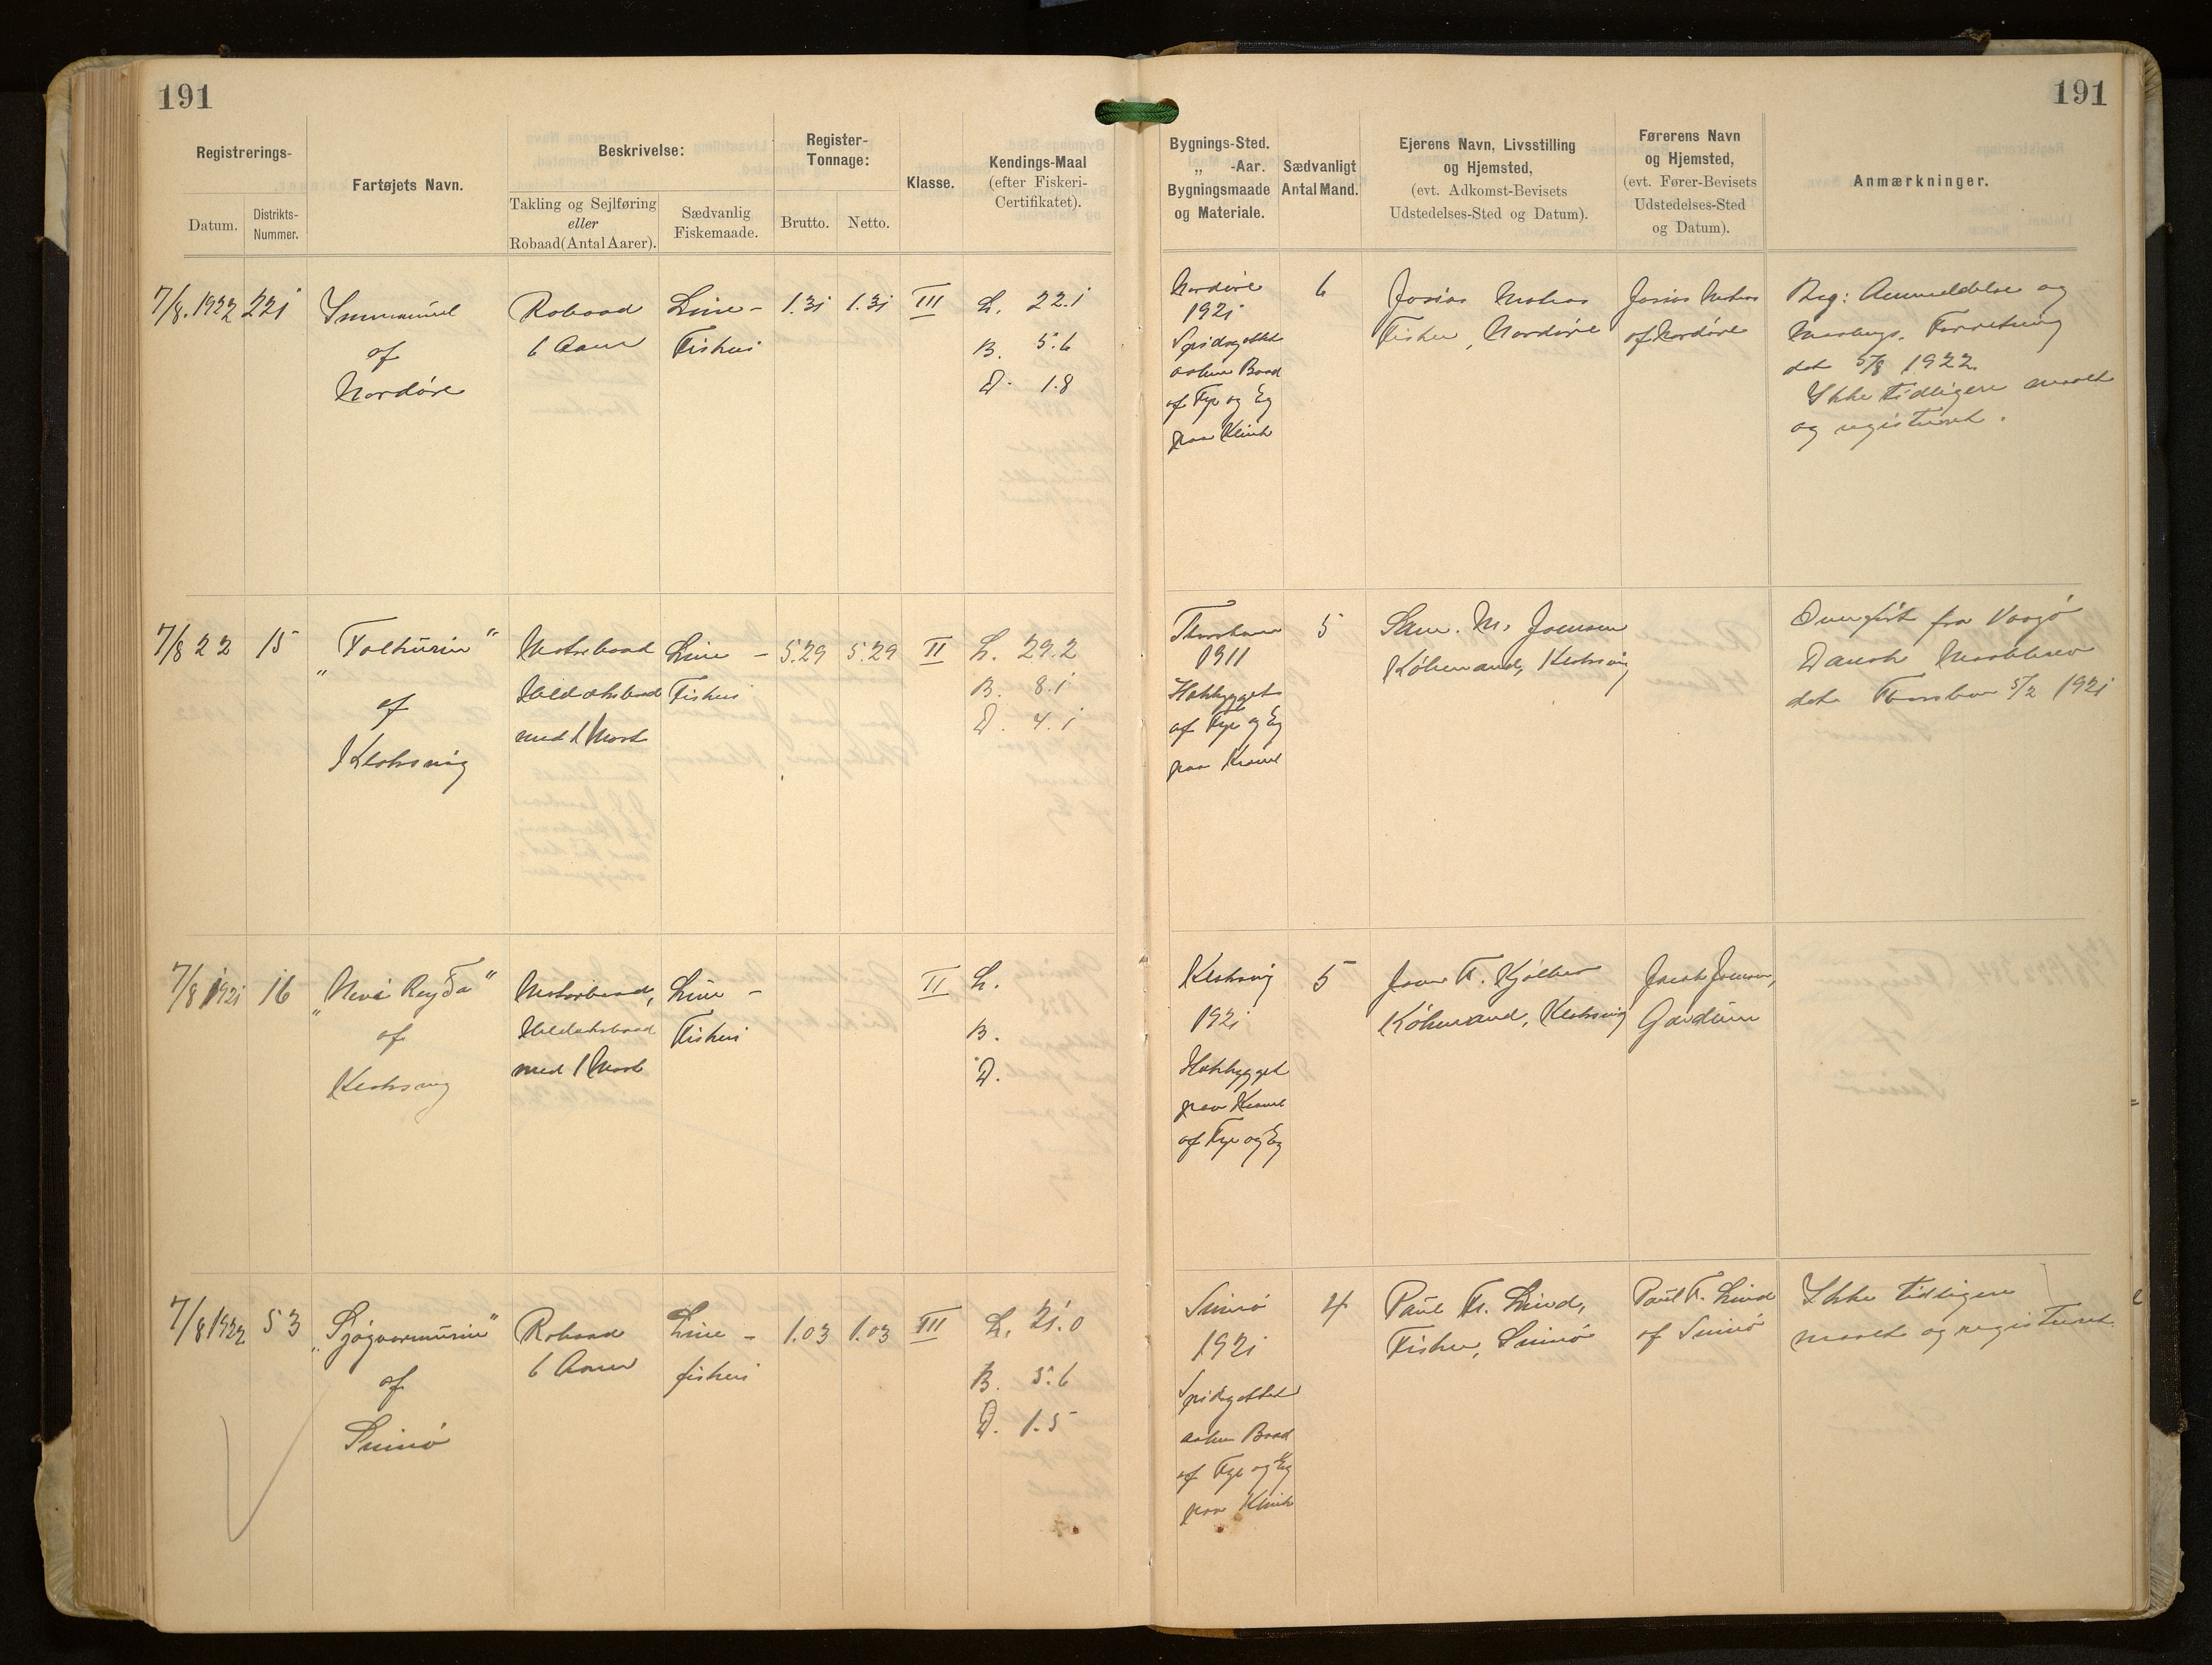 191
191
Registrerings-
Datum.
Distrikts-
Nummer.
Fartøjets Navn.
Beskrivelse:
Takling og Sejlføring
eller
Robaad (Antal Aarer).
Sædvanlig
Fiskemaade.
Register-
Tonnage:
Brutto.
Netto.
Klasse.
Kendings-Maal
(efter Fiskeri-
Certifikatet).
Bygnings-Sted.
„ -Aar.
Bygningsmaade
og Materiale.
Sædvanligt
Antal Mand.
Ejerens Navn, Livsstilling
og Hjemsted,
(evt. Adkomst-Bevisets
Udstedelses-Sted og Datum).
Førerens Navn
og Hjemsted,
(evt. Fører-Bevisets
Udstedelses-Sted
og Datum).
Anmærkninger.
7/8. 1922
221
Immanuel
af
Nordøre
Robaad
6 Aarer
Line-
Fiskeri
1.31
1.31
III
L. 22.1
B. 5.6
D. 1.8
Nordøre
1921
Spidsgattet
aaben Baad
af Fyr og Eg
paa Klink
6
Josias
Fisker, Nordøre
Josias
af Nordøre
Reg: Anmeldelse og
Maalings. Forretning
det 5/8 1922.
Ikke tidligere maalt
og registreret.
7/8 22
15
„
af
Klaksvig
Motorbaad
Dækbaad
med 1 Mast
Line-
Fiskeri
5.29
5.29
II
L. 29.2
B. 8.1
D. 4.1
Thorshavn
1911
Hækbygget
af Fyr og Eg
paa Kravel
5
Sam. M. Joensen
Købmand, Klaksvig
Overført fra Vaagø
Dansk Maalebrev
dat. Thorshavn 5/2 1921
7/8 1921
16
„Nevá Reyða“
af
Klaksvig
Motorbaad,
med 1 Mast
Line-
Fiskeri
II
L.
B.
D.
Klaksvig
1921
Hækbygget
paa Kravel
af Fyr og Eg
5
F. Kjølbro
Købmand, Klaksvig
Jacob Joensen,
7/8 1922
53
af
Svinø
Robaad
6 Aarer
Line-
fiskeri
1.03
1.03
III
L. 21.0
B. 5.6
D. 1.5
Svinø
1921
Spidsgattet
aaben Baad
af Fyr og Eg
paa Klink
4
Paul Fr. Lind,
Fisker, Svinø
Paul F. Lind
af Svinø
Ikke tidligere
maalt og registreret